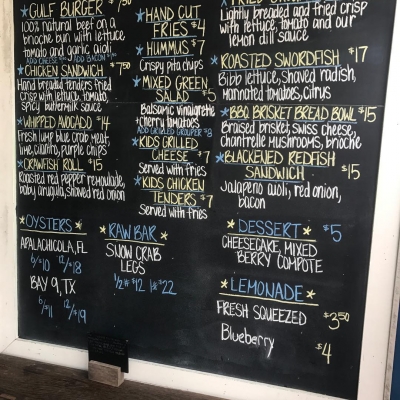 GULF BURGER $7.50
100% natural beef on a
brioche bun with lettuce
tomato and garlic aioli
ADD CHEESE ADD BACON
CHICKEN SANDWICH $7.50
Hand breaded tenders fried
crisp with lettuce, tomato,
spicy buttermilk sauce
WHIPPED AVOCADO $14
Fresh lump blue crab meat,
lime, cilantro, purple chips
CRAWFISH ROLL $15
Roasted red pepper remoulade,
baby arugula, shaved red onion
OYSTERS
APALACHICOLA, FL
6/$10 12/$18
BAY 9, TX
6/$11 12/$19
HAND CUT
FRIES $4
HUMMUS $7
Crispy pita chips
MIXED GREEN
SALAD $5
Balsamic vinaigrette
+ cherry tomatoes
ADD GRILLED GROUPER $8
KIDS GRILLED
CHEESE $7
Served with fries
KIDS CHICKEN
TENDERS $7
Served with fries
RAW BAR
SNOW CRAB
LEGS
1/2# $12 1# $22
Lightly breaded and fried crisp
with lettuce, tomato and our
lemon dill sauce
ROASTED SWORDFISH $17
Bibb lettuce, shaved radish,
marinated tomatoes, citrus
BBQ BRISKET BREAD BOWL $15
Braised brisket, swiss cheese,
chantrelle mushrooms, brioche
BLACKENED REDFISH
SANDWICH $15
Jalapeño aioli, red onion,
bacon
DESSERT $5
CHEESECAKE, MIXED
BERRY COMPOTE
LEMONADE
FRESH SQUEEZED $3.50
Blueberry $4